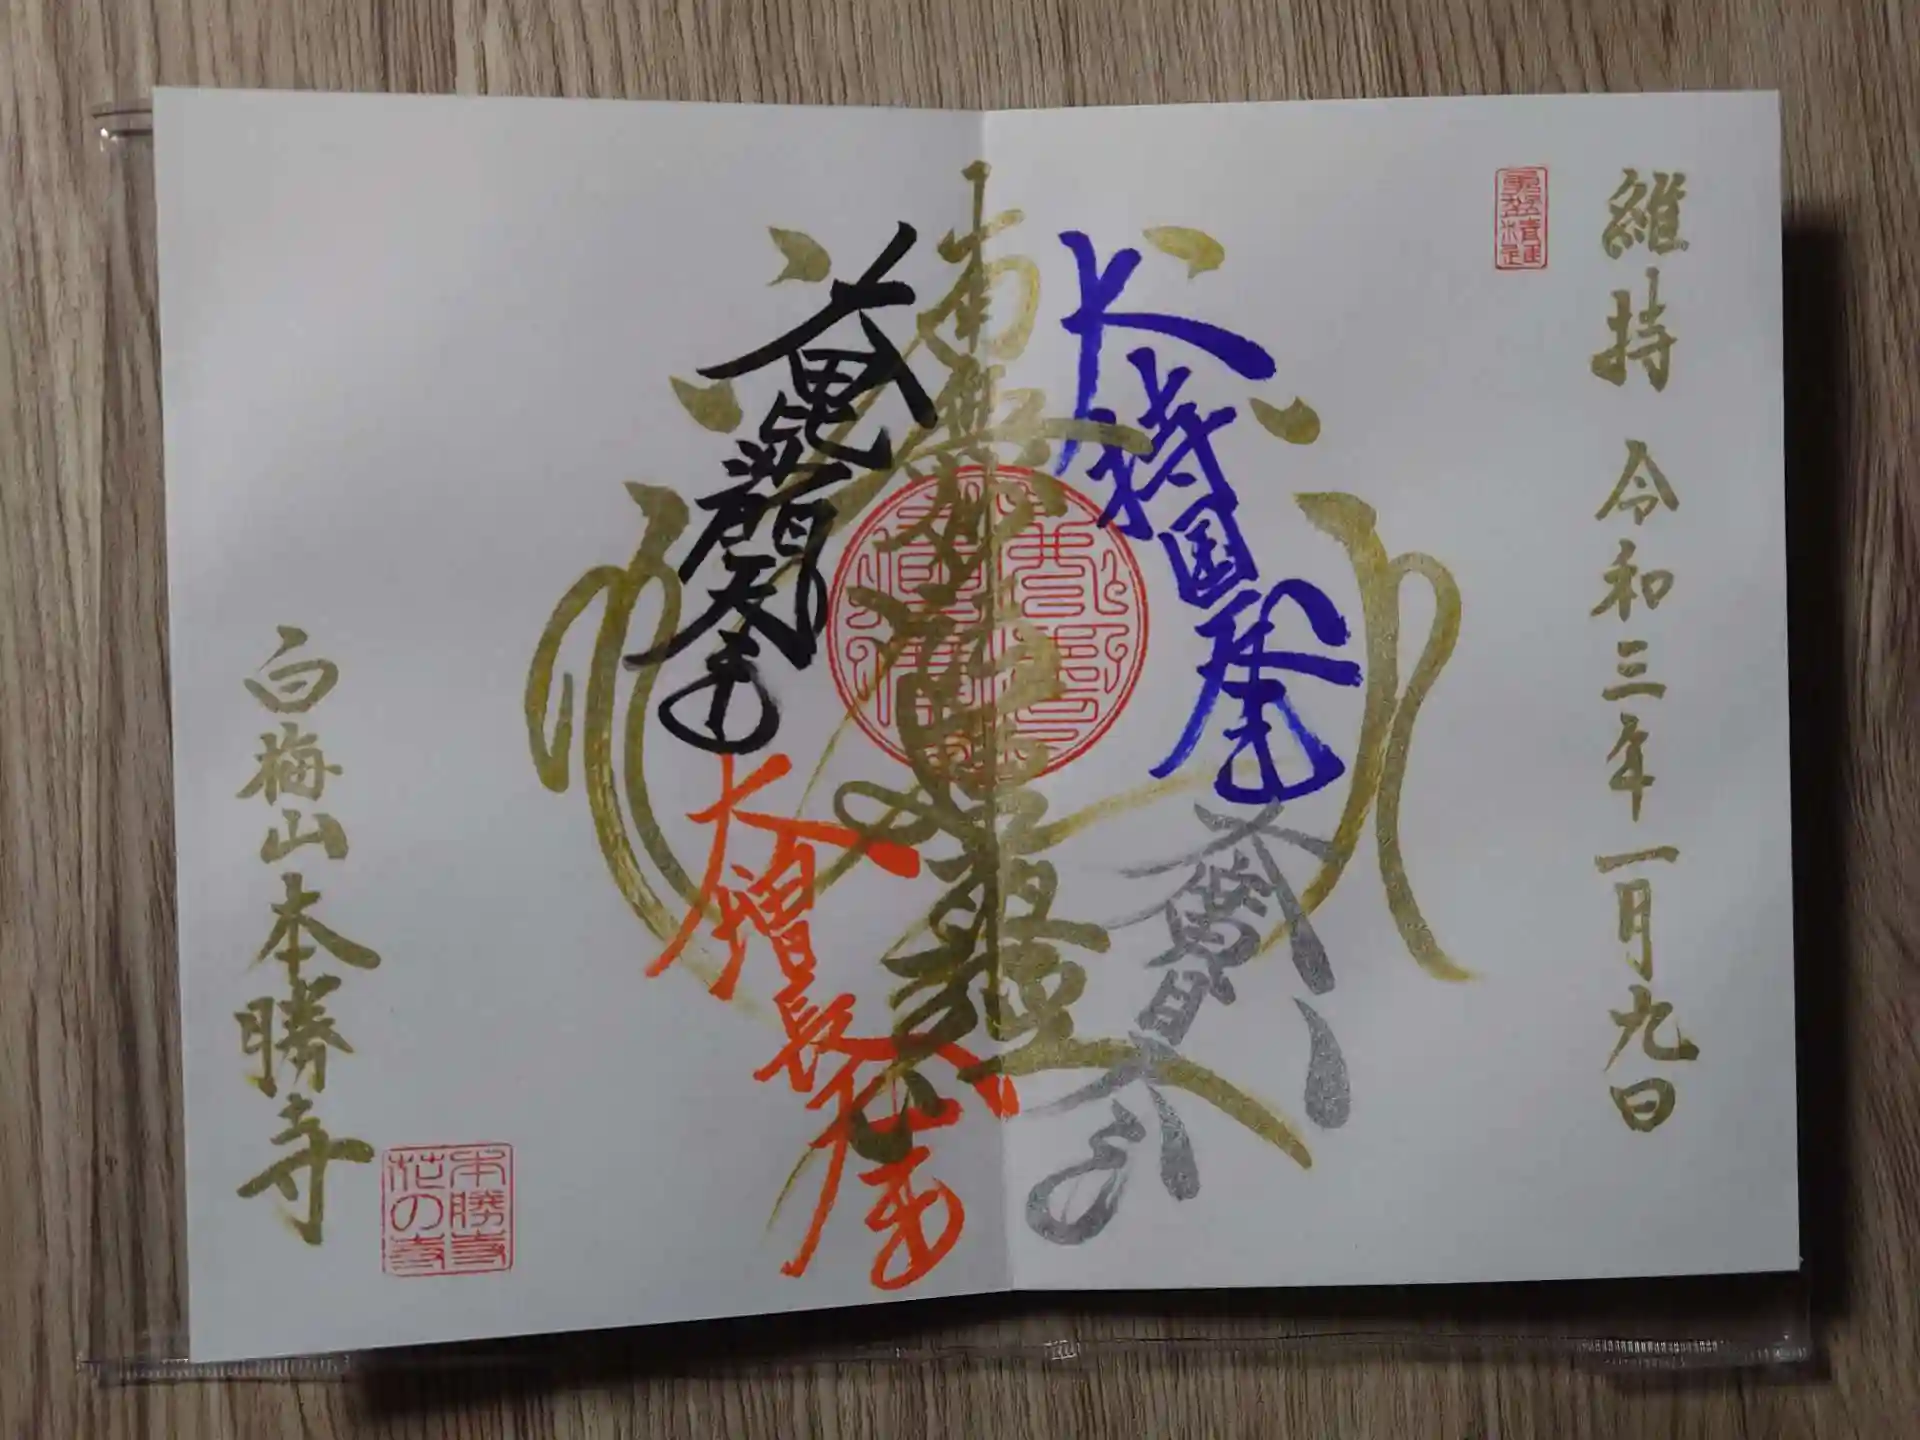 維持 令和三年一月九日
大持国天王
大廣目天王
南無妙法蓮華経
大毘沙門天王
大増長天王
白梅山本勝寺
本勝寺
花の寺